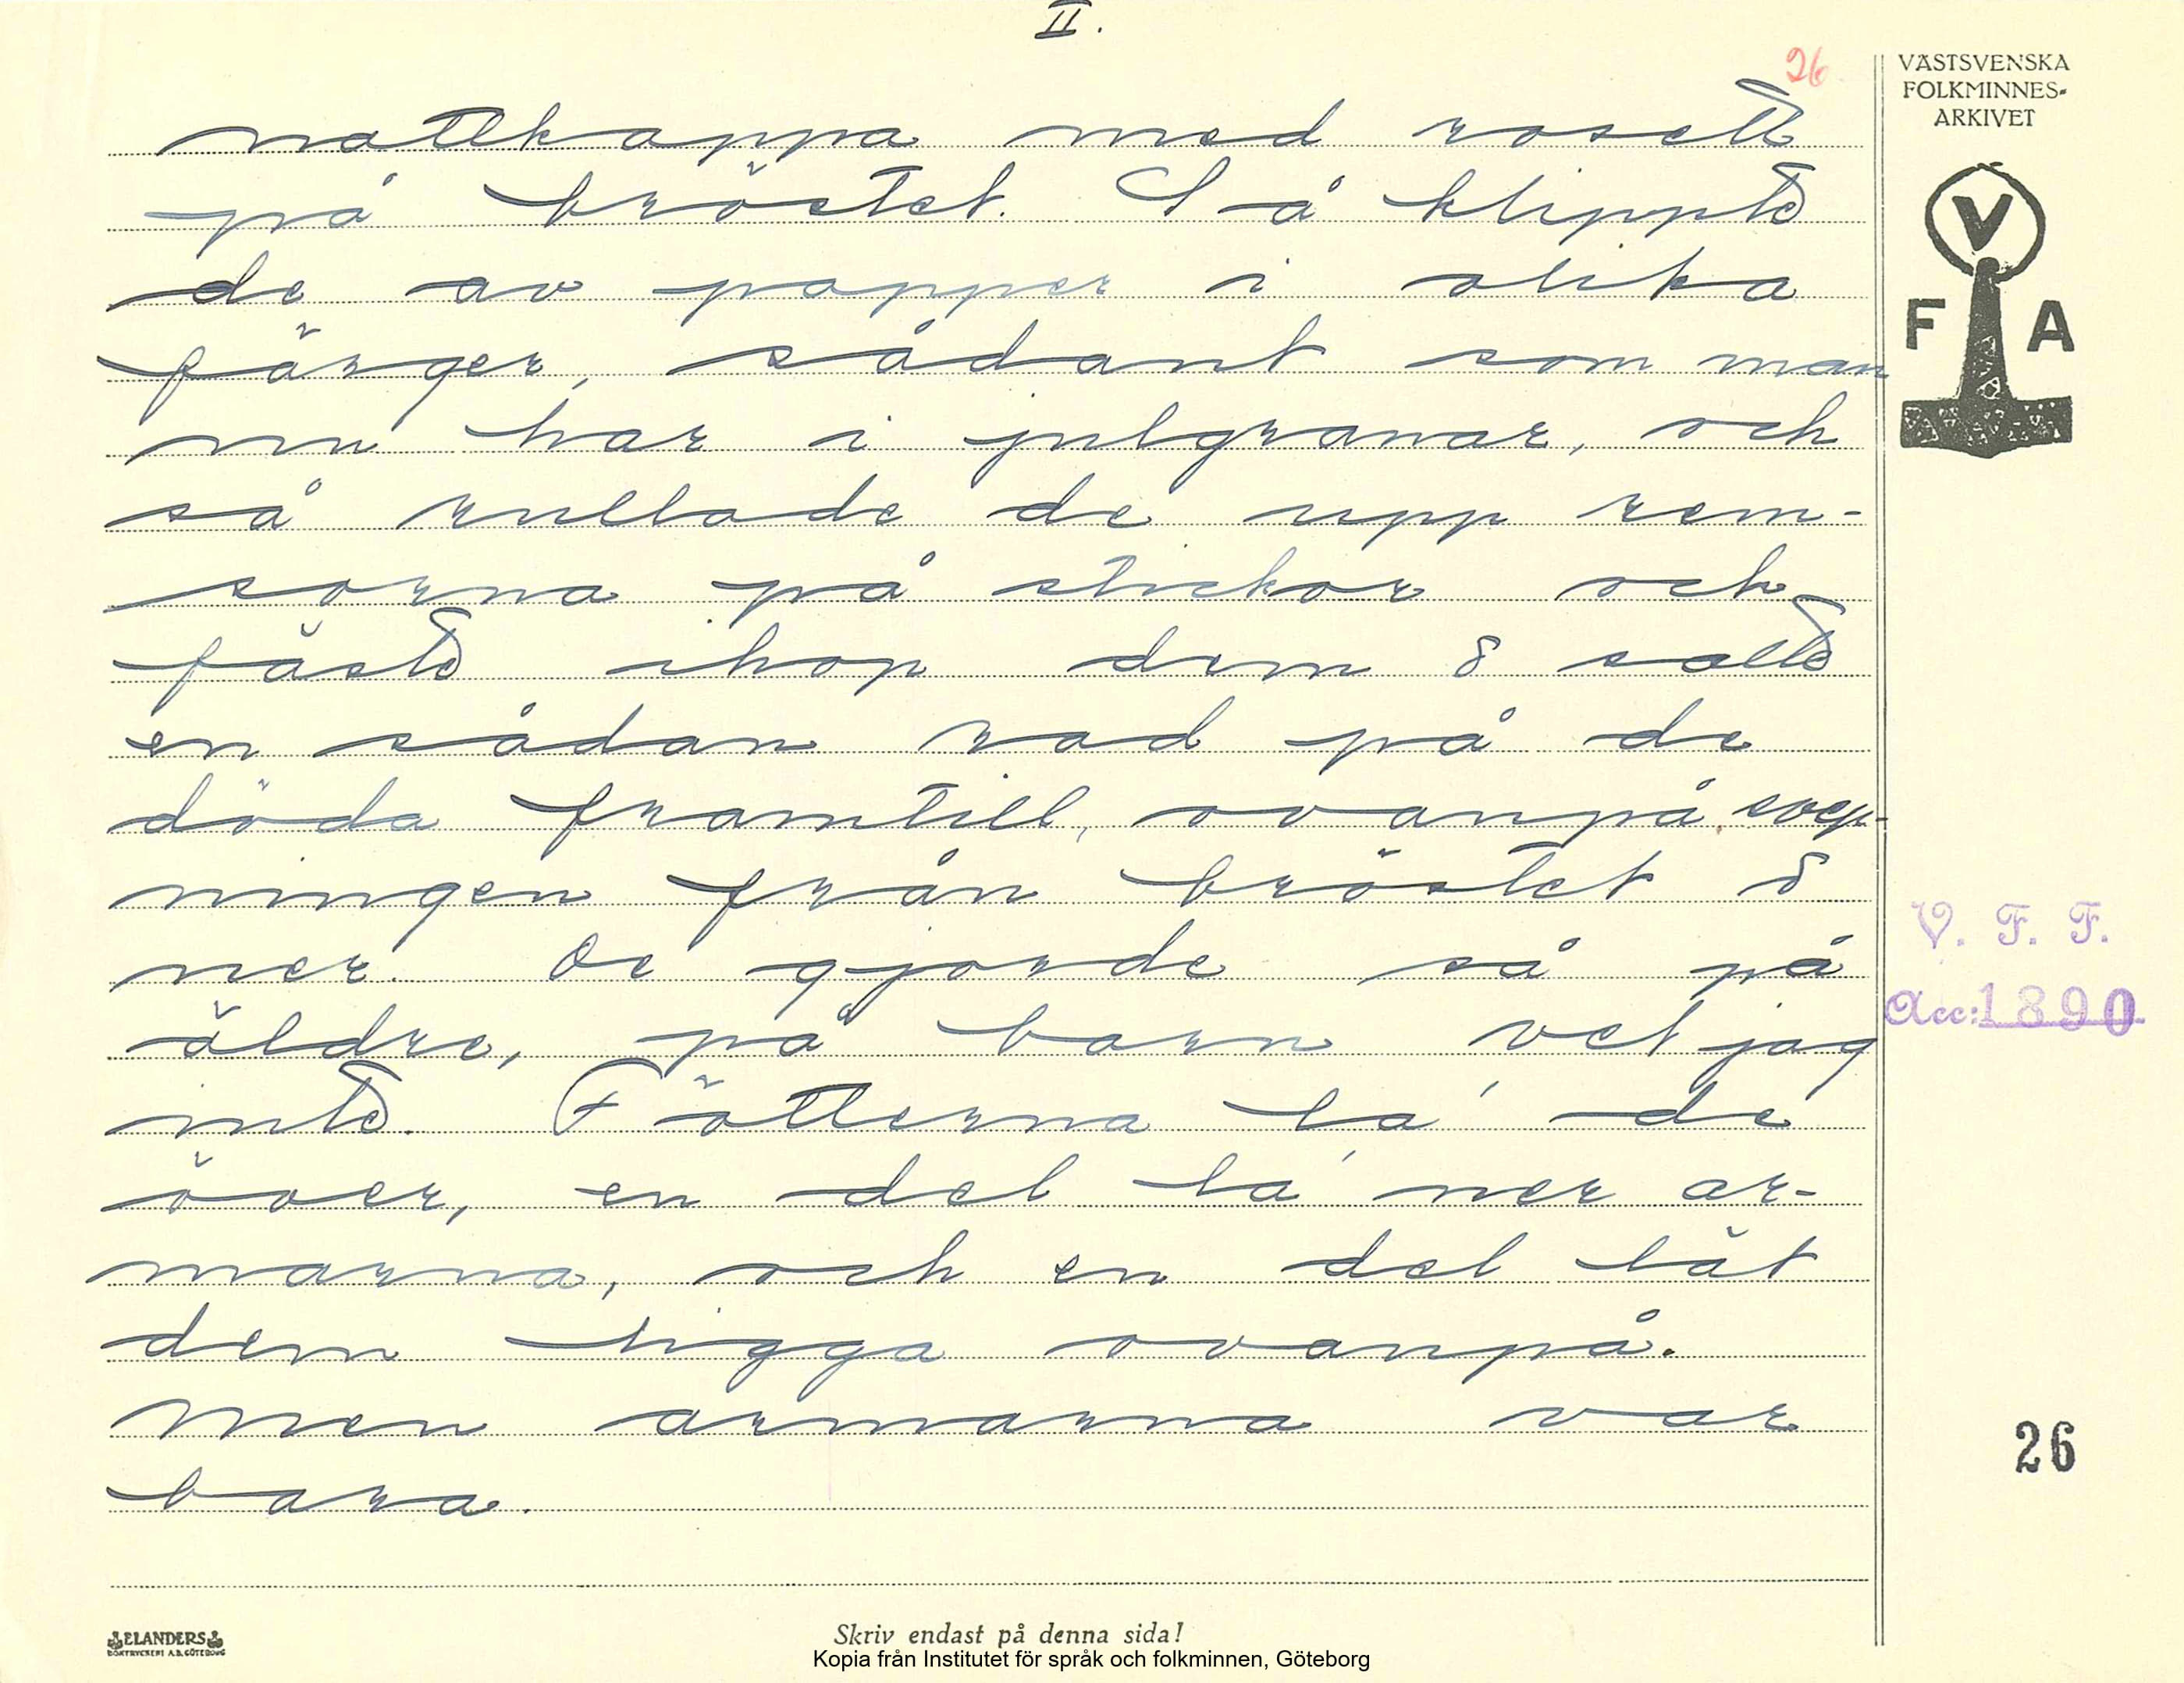 II.
26
VÄSTSVENSKA
FOLKMINNES-
ARKIVET
V
F A
nattkappa med rosett
på bröstet. Så klippte
de av papper i olika
färger, sådant som man
nu har i julgranar, och
så rullade de upp rem-
sorna på stickor och
fäste ihop dem & satte
en sådan rad på de
döda framtill, ovanpå svep-
ningen från bröstet &
ner. De gjorde så på
äldre, på barn vet jag
inte. Fötterna la' de
över, en del la' ner ar-
marna, och en del lät
dem ligga ovanpå.
Men armarna var
bara.
V. F. F.
Acc: 1890
26
ELANDERS
BOKTRYCKERI A.B. GÖTEBORG
Skriv endast på denna sida!
Kopia från Institutet för språk och folkminnen, Göteborg